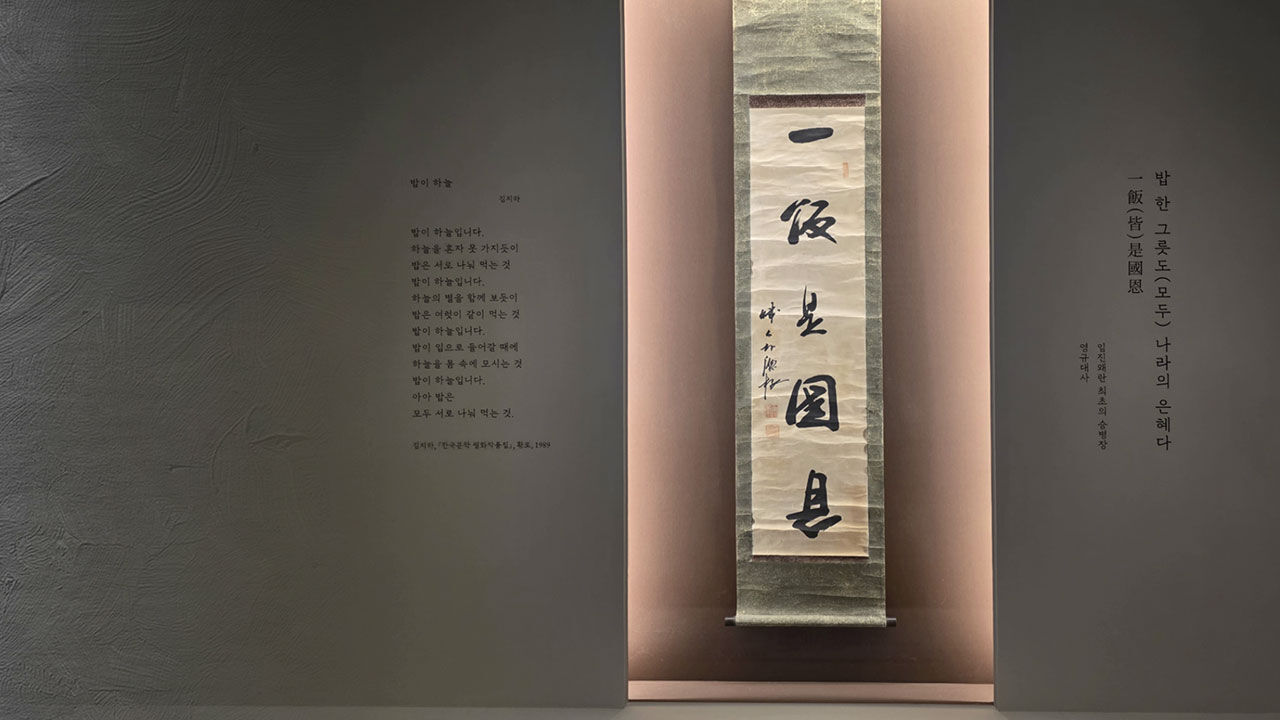 밥이 하늘
김지하
밥이 하늘입니다.
하늘을 혼자 못 가지듯이
밥은 서로 나눠 먹는 것
밥이 하늘입니다.
하늘의 별을 함께 보듯이
밥은 여럿이 같이 먹는 것
밥이 하늘입니다.
밥이 입으로 들어갈 때에
하늘을 몸 속에 모시는 것
밥이 하늘입니다.
아아 밥은
모두 서로 나눠 먹는 것.
김지하, 『한국문학 명화작품집』, 1989
一飯是國恩
밥 한 그릇도(모두) 나라의 은혜다
一飯(皆)是國恩
임진왜란 최초의 승병장
영규대사